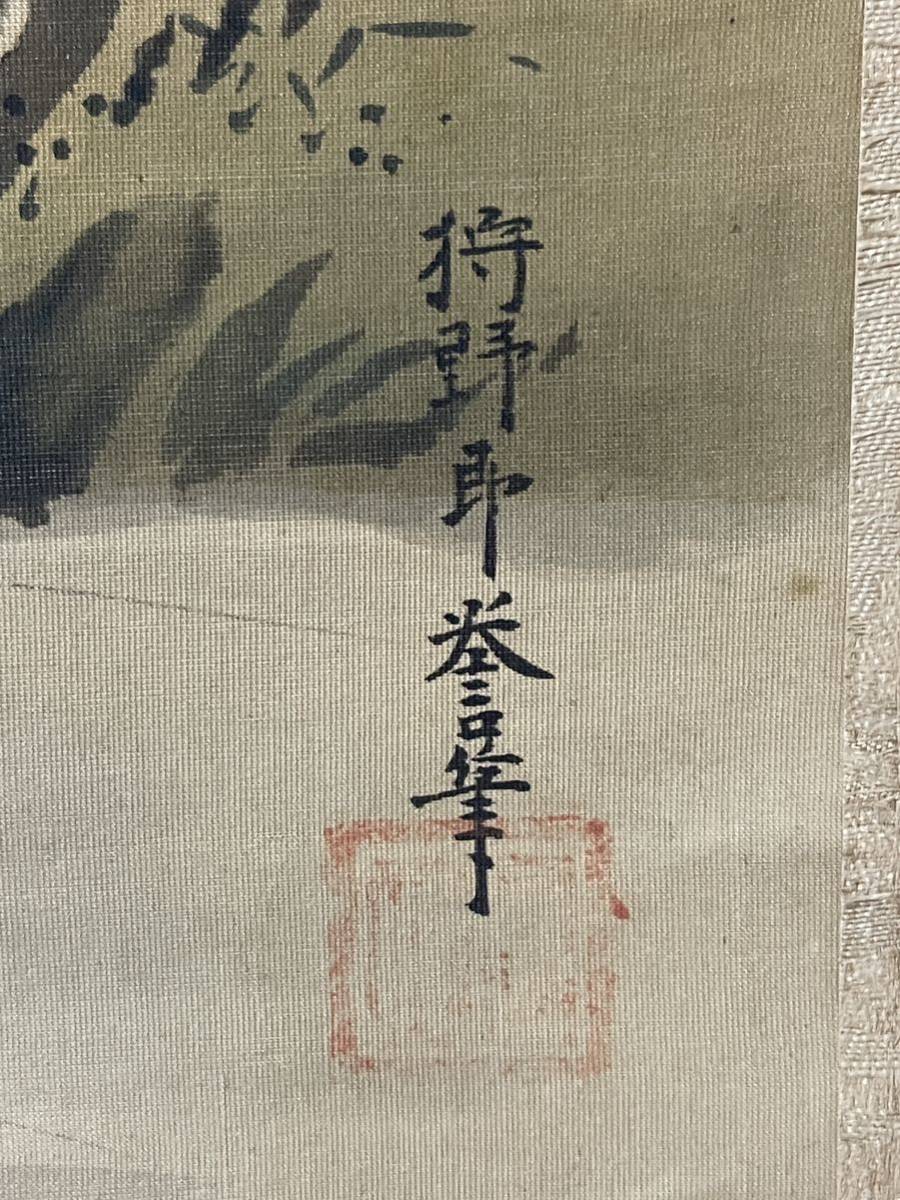 狩野即誉筆